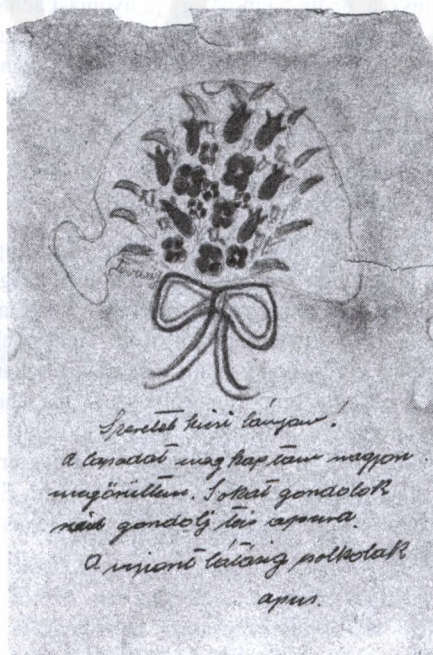 Szeretet kisi lányom!
A lapodat meg kaptam nagyon
megörültem. Sokat gondolok
rád gondolj téis apura.
A viszont látásig pollolak
apus.